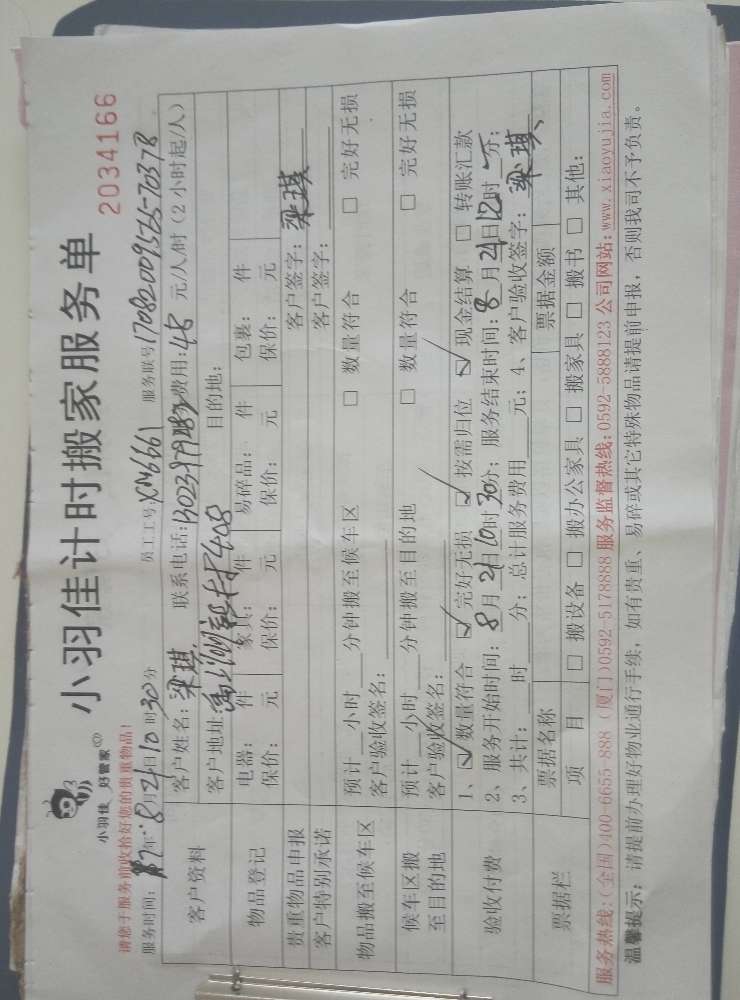 小羽佳 好管家
小羽佳计时搬家服务单
2034166
请您于服务前收拾好您的贵重物品!
服务时间: 17年 8月21日10时30分 员工工号:XM6661 服务联号
客户资料
客户姓名: 梁琪 联系电话: 费用:45 元/人/时(2小时起/人)
客户地址: 目的地:
物品登记
电器: 件 家具: 件 易碎品: 件 包裹: 件
保价: 元 保价: 元 保价: 元 保价: 元
贵重物品申报 客户签字: 梁琪
客户特别承诺 客户签字:
物品搬至候车区
预计__小时__分钟搬至候车区 □ 数量符合 □ 完好无损
客户验收签名:
候车区搬至目的地
预计__小时__分钟搬至目的地 □ 数量符合 □ 完好无损
客户验收签名:
验收付费
1、☑数量符合 ☑完好无损 ☑按需归位 ☑现金结算 □ 转账汇款
2、服务开始时间: 8月21日10时30分; 服务结束时间: 8月21日12时__分;
3、共计:__时__分; 总计服务费用__元; 4、客户验收签字: 梁琪
票据栏
票据名称 票据金额
项 目 □ 搬设备 □ 搬办公家具 □ 搬家具 □ 搬书 □ 其他:
服务热线:(全国)400-6655-888 (厦门)0592-5178888 服务监督热线:0592-5888123 公司网站:www.xiaoyujia.com
温馨提示: 请提前办理好物业通行手续, 如有贵重、易碎或其它特殊物品请提前申报, 否则我司不予负责。